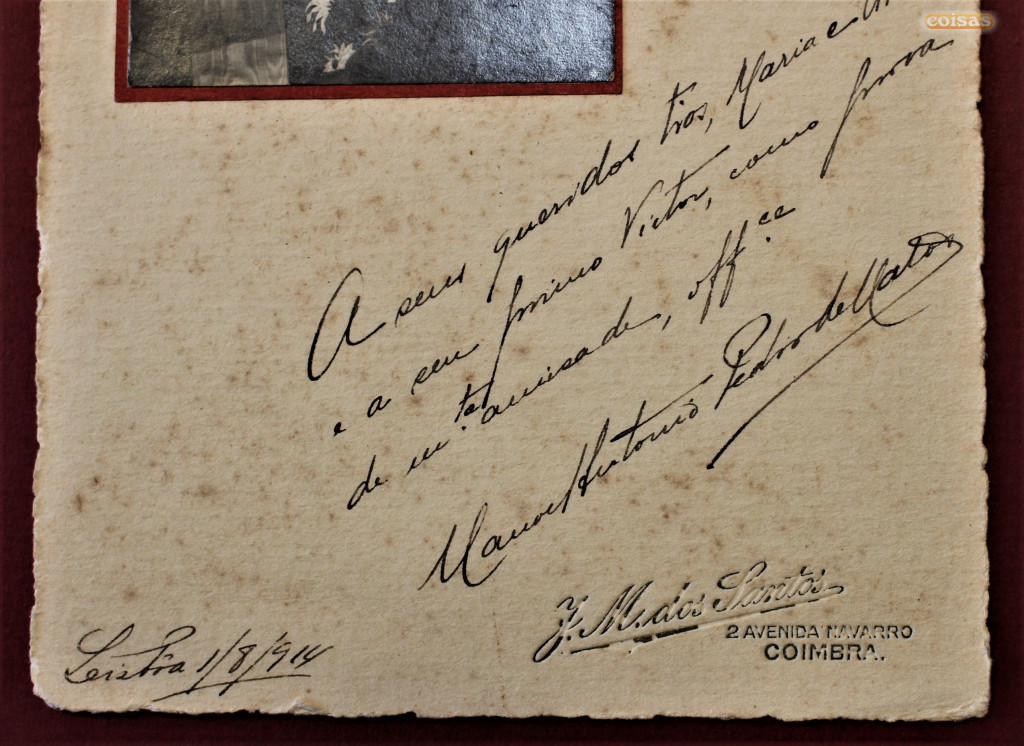 coisas
A seus queridos tios, Maria e
e a seu primo Victor, como prova
de m.ta amisade, off.ce
Manoel Antonio Pedro de Mattos
J. M. dos Santos
2 AVENIDA NAVARRO
COIMBRA.
1/8/914